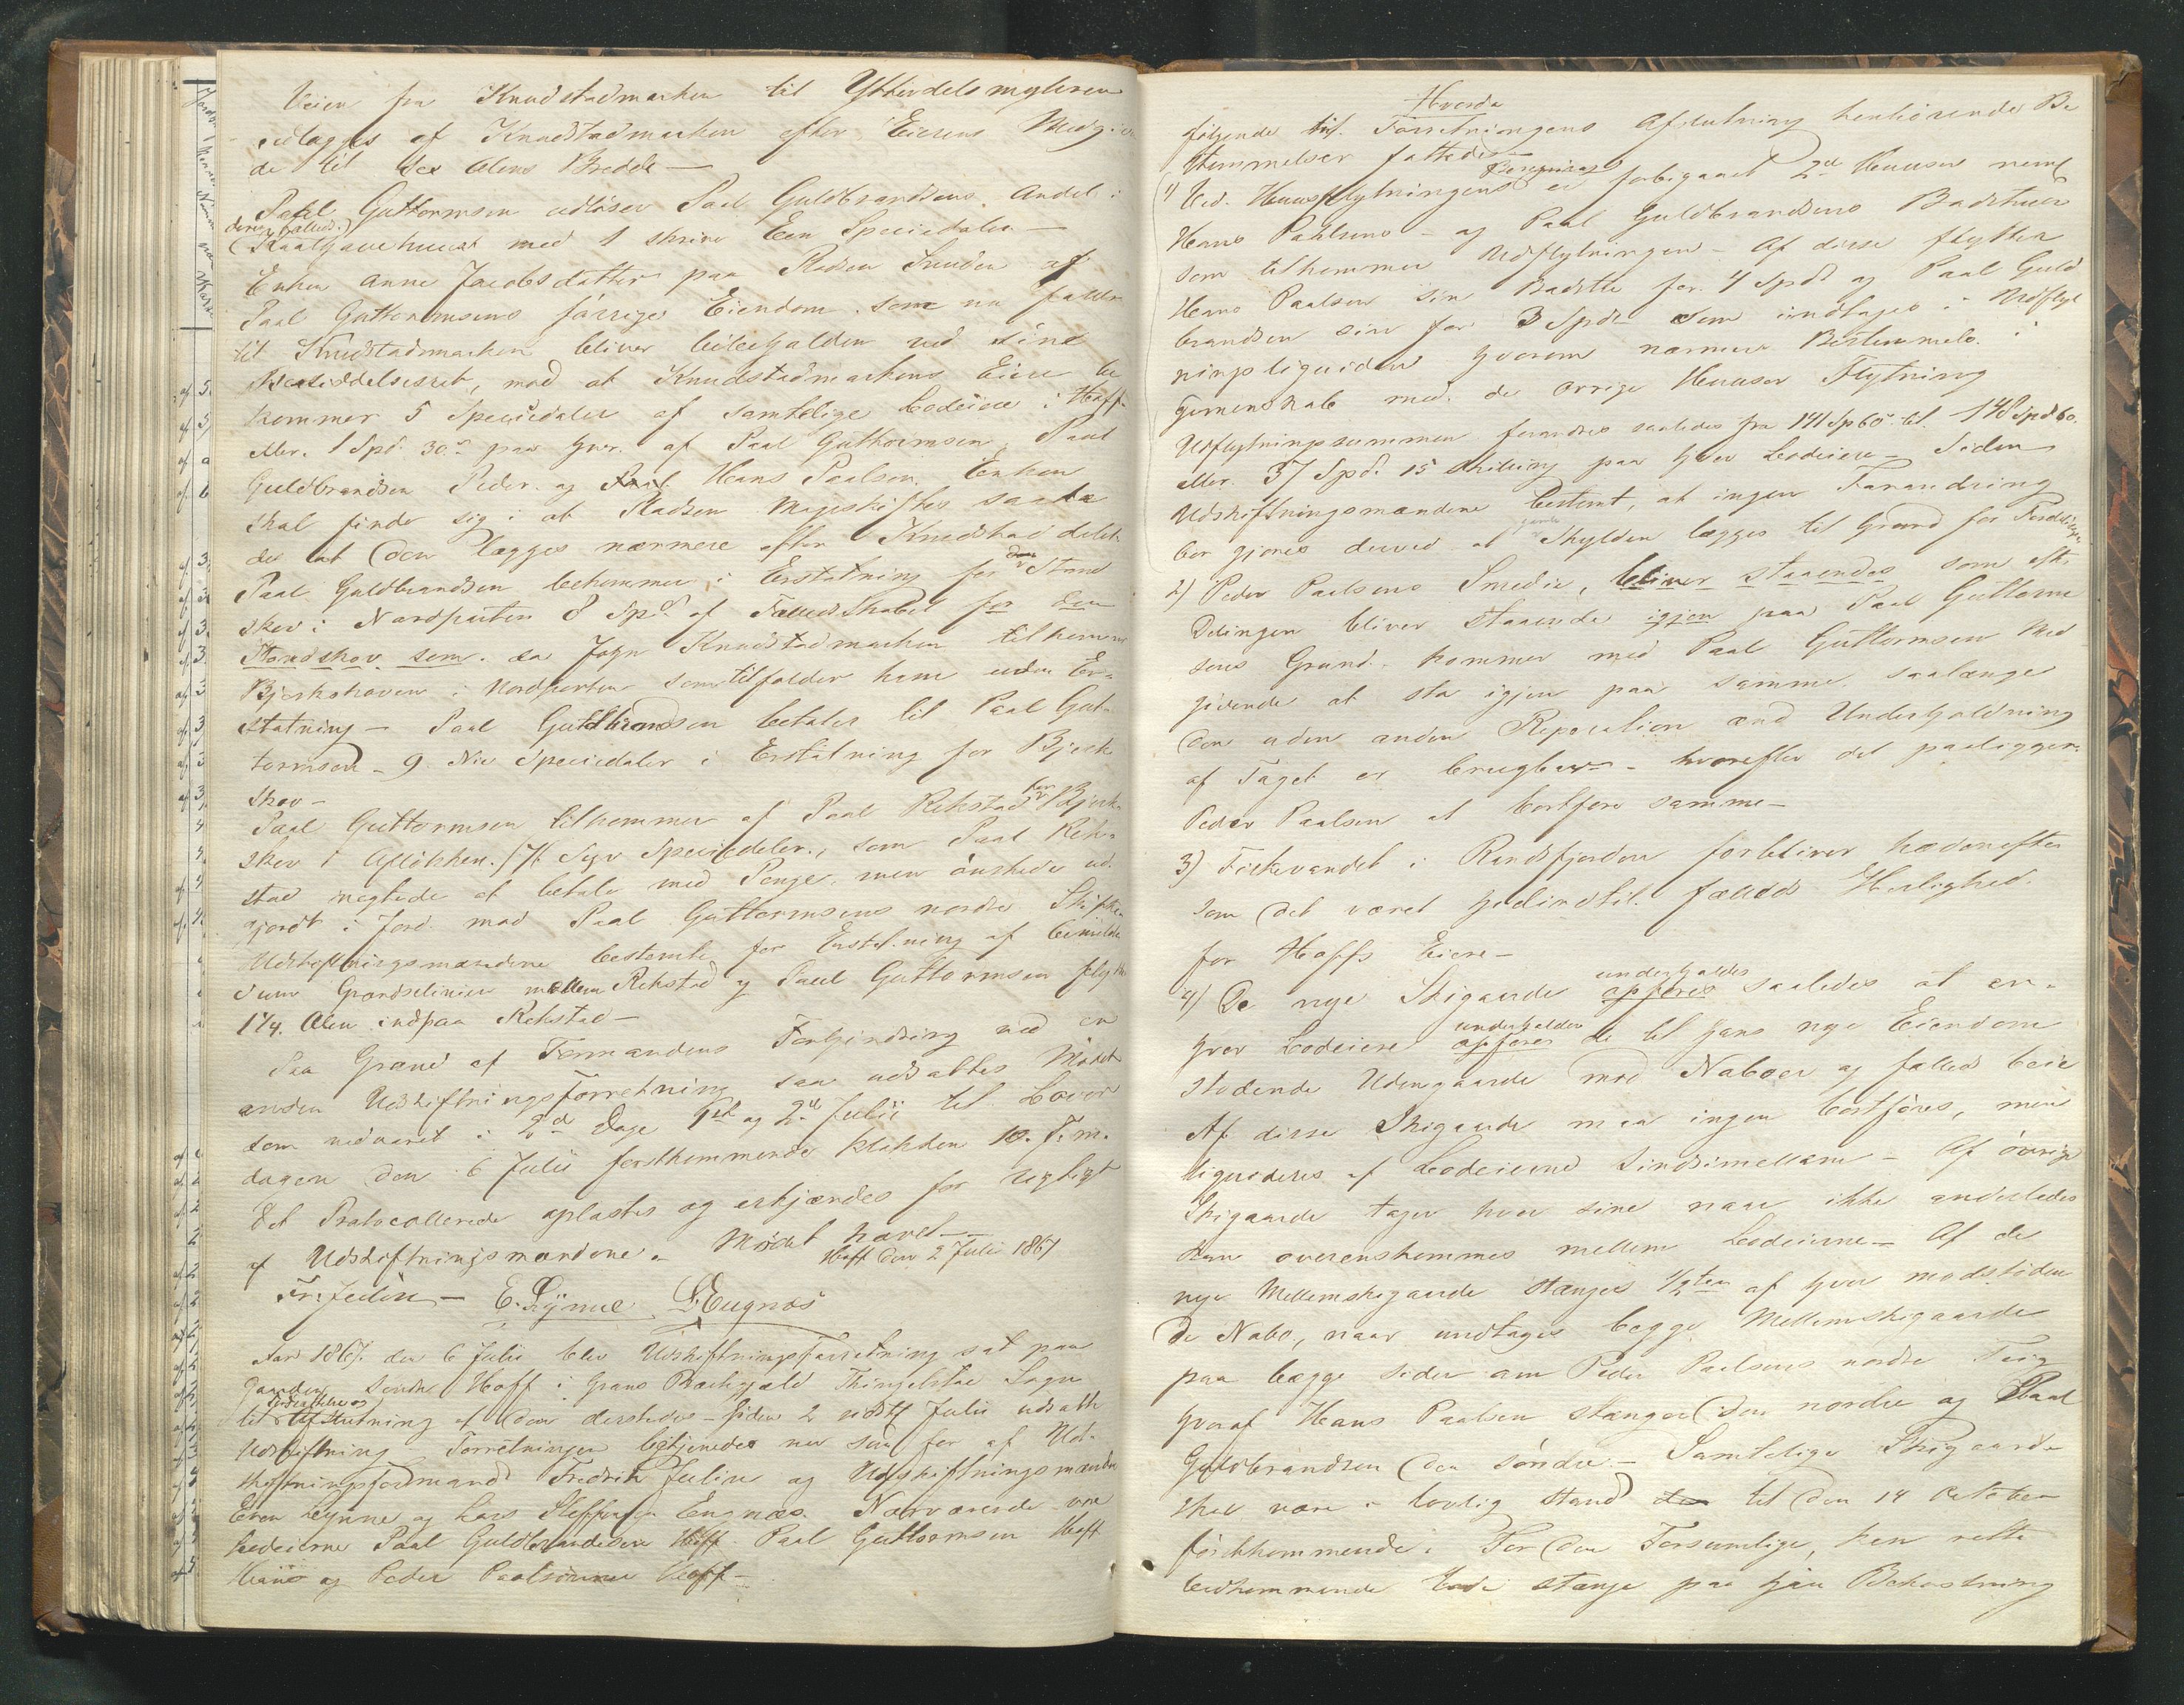 Veien fra Knudstadmarken til Ytterdelsmyhren
udlægges af Knudstadmarken efter Eierens Medgi-
de til sex Alens Bredde —
Paul Guttormsen udløser Paul Guldbrandsens Andel i
den fælleds
Kaalhavehuuset med 1 skrive Een Speciedaler —
Enken Anne Jacobsdatter paa Pladsen Smeden af
Paal Guttormsens forrige Eiendom, som nu falder
til Knudstadmarken bliver beholden ved sine
Besiddelsesret, mod at Knudstadmarkens Eiere be
kommer 5 Speciedaler af samtlige Lodeiere i Hoff
eller 1 Spd. 30 s paa hver af Paal Guttormsen, Paul
Guldbrandsen Peder og Hans Paalsen. Enken
skal finde sig i at Pladsen Mageskiftes saale
des at den lægges nærmere efter Knudstad delet
Paal Guldbrandsen bekommer i Erstatning for den Stand
skov i Nordputten 8 Spd af Fælledskabet for den
Standskov som. da John Knudstadmarken tilkommer
Bjerkskoven i Nordporten som tilfalder ham uden Er-
statning — Paal Guldbrandsen betaler til Paal Gut-
tormsen — 9 Nie Speciedaler i Erstatning for Bjerk
skov —
Paal Guttormsen tilkommer af Paal Rekstad for Bjerk-
skov i Afløkken 7 Syv Speciedaler, som Paal Rek-
stad nægtede at betale med Penge, men ønskede ud-
gjort i Jord mod Paal Guttormsens nordre Skifte
Udskiftningsmændene bestemte for Erstatning af bemeldte
Sum Grændselinien mellem Rekstad og Paul Guttormsen flyttes
1 1/4. Alen indpaa Rekstad —
Paa Grund af Formandens Forhindring ved en
anden Udskiftningsforretning saa udsattes Mødet
som nu varet i 2de Dage 1ste og 2den Julii til Løver
dagen den 6 Julii førstkommende Klokken 10. F.m.
Det Protocollerede oplæstes og erkjændes for rigtigt
af Udskiftningsmændene. Mødet hævet —
Hoff den 2 Juli 1867
Fr. Julin — E. Lynne L. Engnæs
Aar 1867. den 6 Julii blev Udskiftningsforretning sat paa
Gaarden Søndre Hoff i Grans Præstegjæld Tingelstad Sogn
til Fortsættelse og
Afslutning af den dersteds siden 2 sidstl Julii udsatte
Udskiftning. Forretningen betjenedes nu som før af Ud-
skiftningsformand Fredrik Juline og Udskiftningsmændene
Even Lynne og Lars Steffensen Engnæs. Nærværende var
Lodeierne Paal Guldbrandsen Hoff. Paal Guttormsen Hoff
Hans og Peder Paalsønner Hoff —
Hvorda
følgende til Forretningens Afslutning henhørende Be
stemmelser fattedes —
1) Ved Huusflytningens Beregning er forbigaaet 2de Huuser neml
Hans Paalsens — og Paal Guldbrandsens Badstuer
som tilkommer Udflytningen — Af disse flytter
Hans Paalsen sin Badstue for 4 Spd og Paal Guld
brandsen sin for 3 Spd som indtages i Udflyt
ningsliquiden hvorom nærmere Bestemmels. i
Gjemenskab med de øvrige Huuser Flytning
Udflytningssummen forandres saaledes fra 141 Sp 60 til 148 Spd 60.
eller 37 Spd. 15 skilling paa hver Lodeiere — Siden
Udskiftningsmændene bestemt, at ingen Forandring
bør gjøres derved at gamle Skylden lægges til Grund for Fordelingen
2) Peder Paalsens Smedie, bliver staaendes som eft.
Delingen bliver staaende igjen paa Paal Guttorm
sens Grund. kommer med Paal Guttormsens Med
givende at sta igjen paa samme, saalænge
den uden anden Reparation end Underholdning
af Taget er brugbar — hvorefter det paaligger
Peder Paalsen at bortføre samme —
3) Fiskevandet i Randsfjorden forbliver hædenefter
som det været hidindtil fælleds Herlighed
for Hoffs Eiere —
4) De nye Skigaarde underholdes
opføres saaledes at en-
hver Lodeiere underholder
opfører de til hans nye Eiendom
stødende Udengaarde mod Naboer og fælleds beie
Af disse Skigaarde maa ingen bortføres, men
liqvideres af Lodeierne sindimellem — Af øvrige
Skigaarde tager hver sine naar ikke anderledes
kan overenskommes mellem Lodeierne — Af de
nye Mellemskigaarde stænges 1/2ten af hver modstøden
de Nabo, naar undtages begge Mellemskigaarde
paa begge sider om Peder Paalsens nordre Teig
hvoraf Hans Paalsen stænger den nordre og Paal
Guldbrandsen den søndre. — Samtlige Skigaarde
skal være i lovlig stand til den 14 October
førstkommende. For den Forsømmelige, kan rette
vedkommende lade stænge paa hans Bekostning